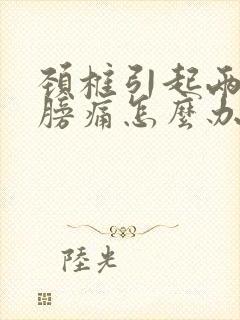 頚椎引起兩
膀痛怎麼办
陸光